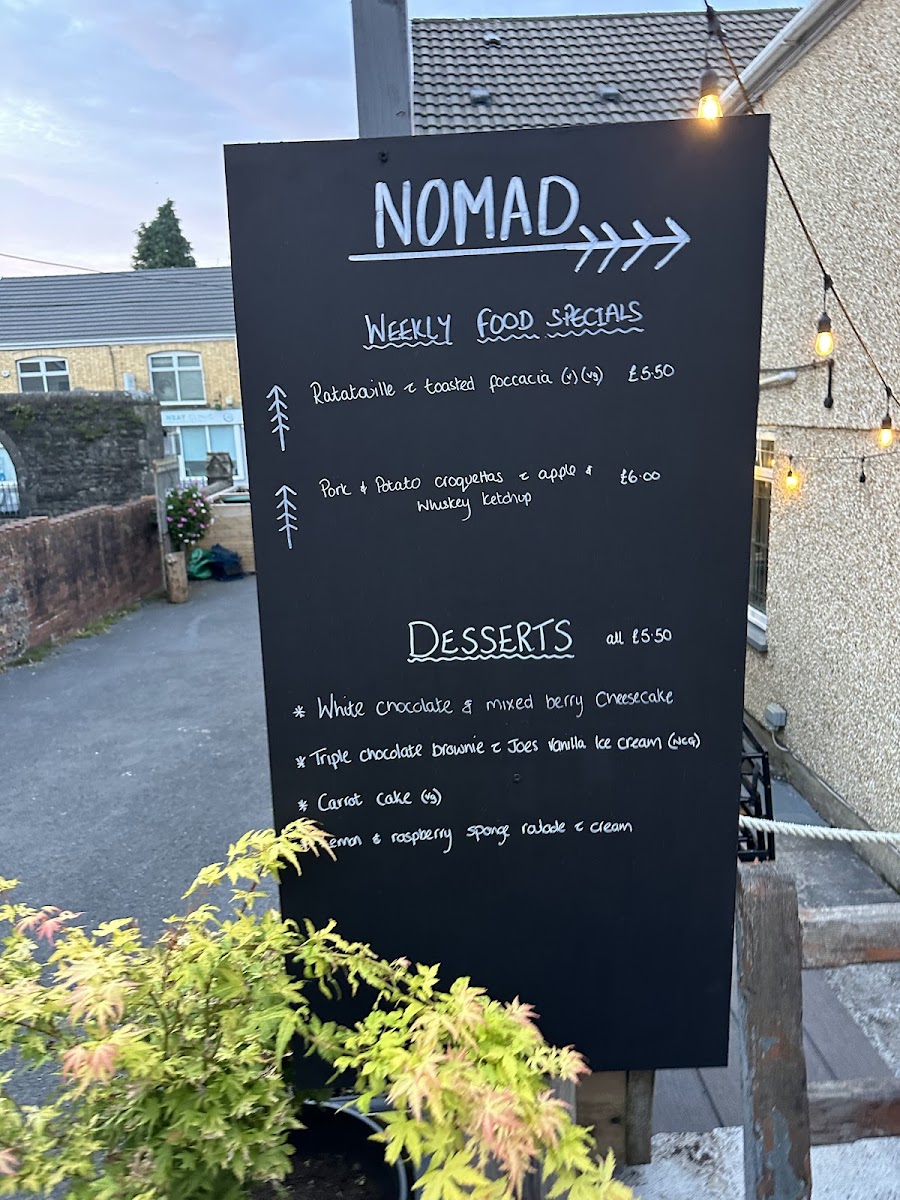 NOMAD
WEEKLY FOOD SPECIALS
Ratataville c toasted foccacia (v) (vg) £5.50
Pork & Potato croquettas c apple & £6.00
Whiskey ketchup
DESSERTS all £5.50
* White chocolate & mixed berry Cheesecake
* Triple chocolate brownie c Joes vanilla Ice cream (NCG)
* Carrot cake (vg)
Lemon & raspberry sponge roulade c cream